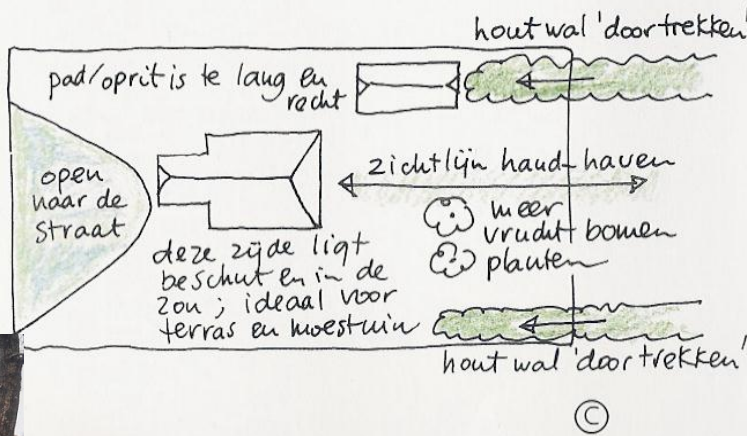 hout wal 'door trekken'
pad/oprit is te lang en
recht
open
naar de
straat
zichtlijn hand-haven
meer
vrucht bomen
planten
deze zijde ligt
beschut en in de
zon; ideaal voor
terras en moestuin
hout wal 'door trekken'
C